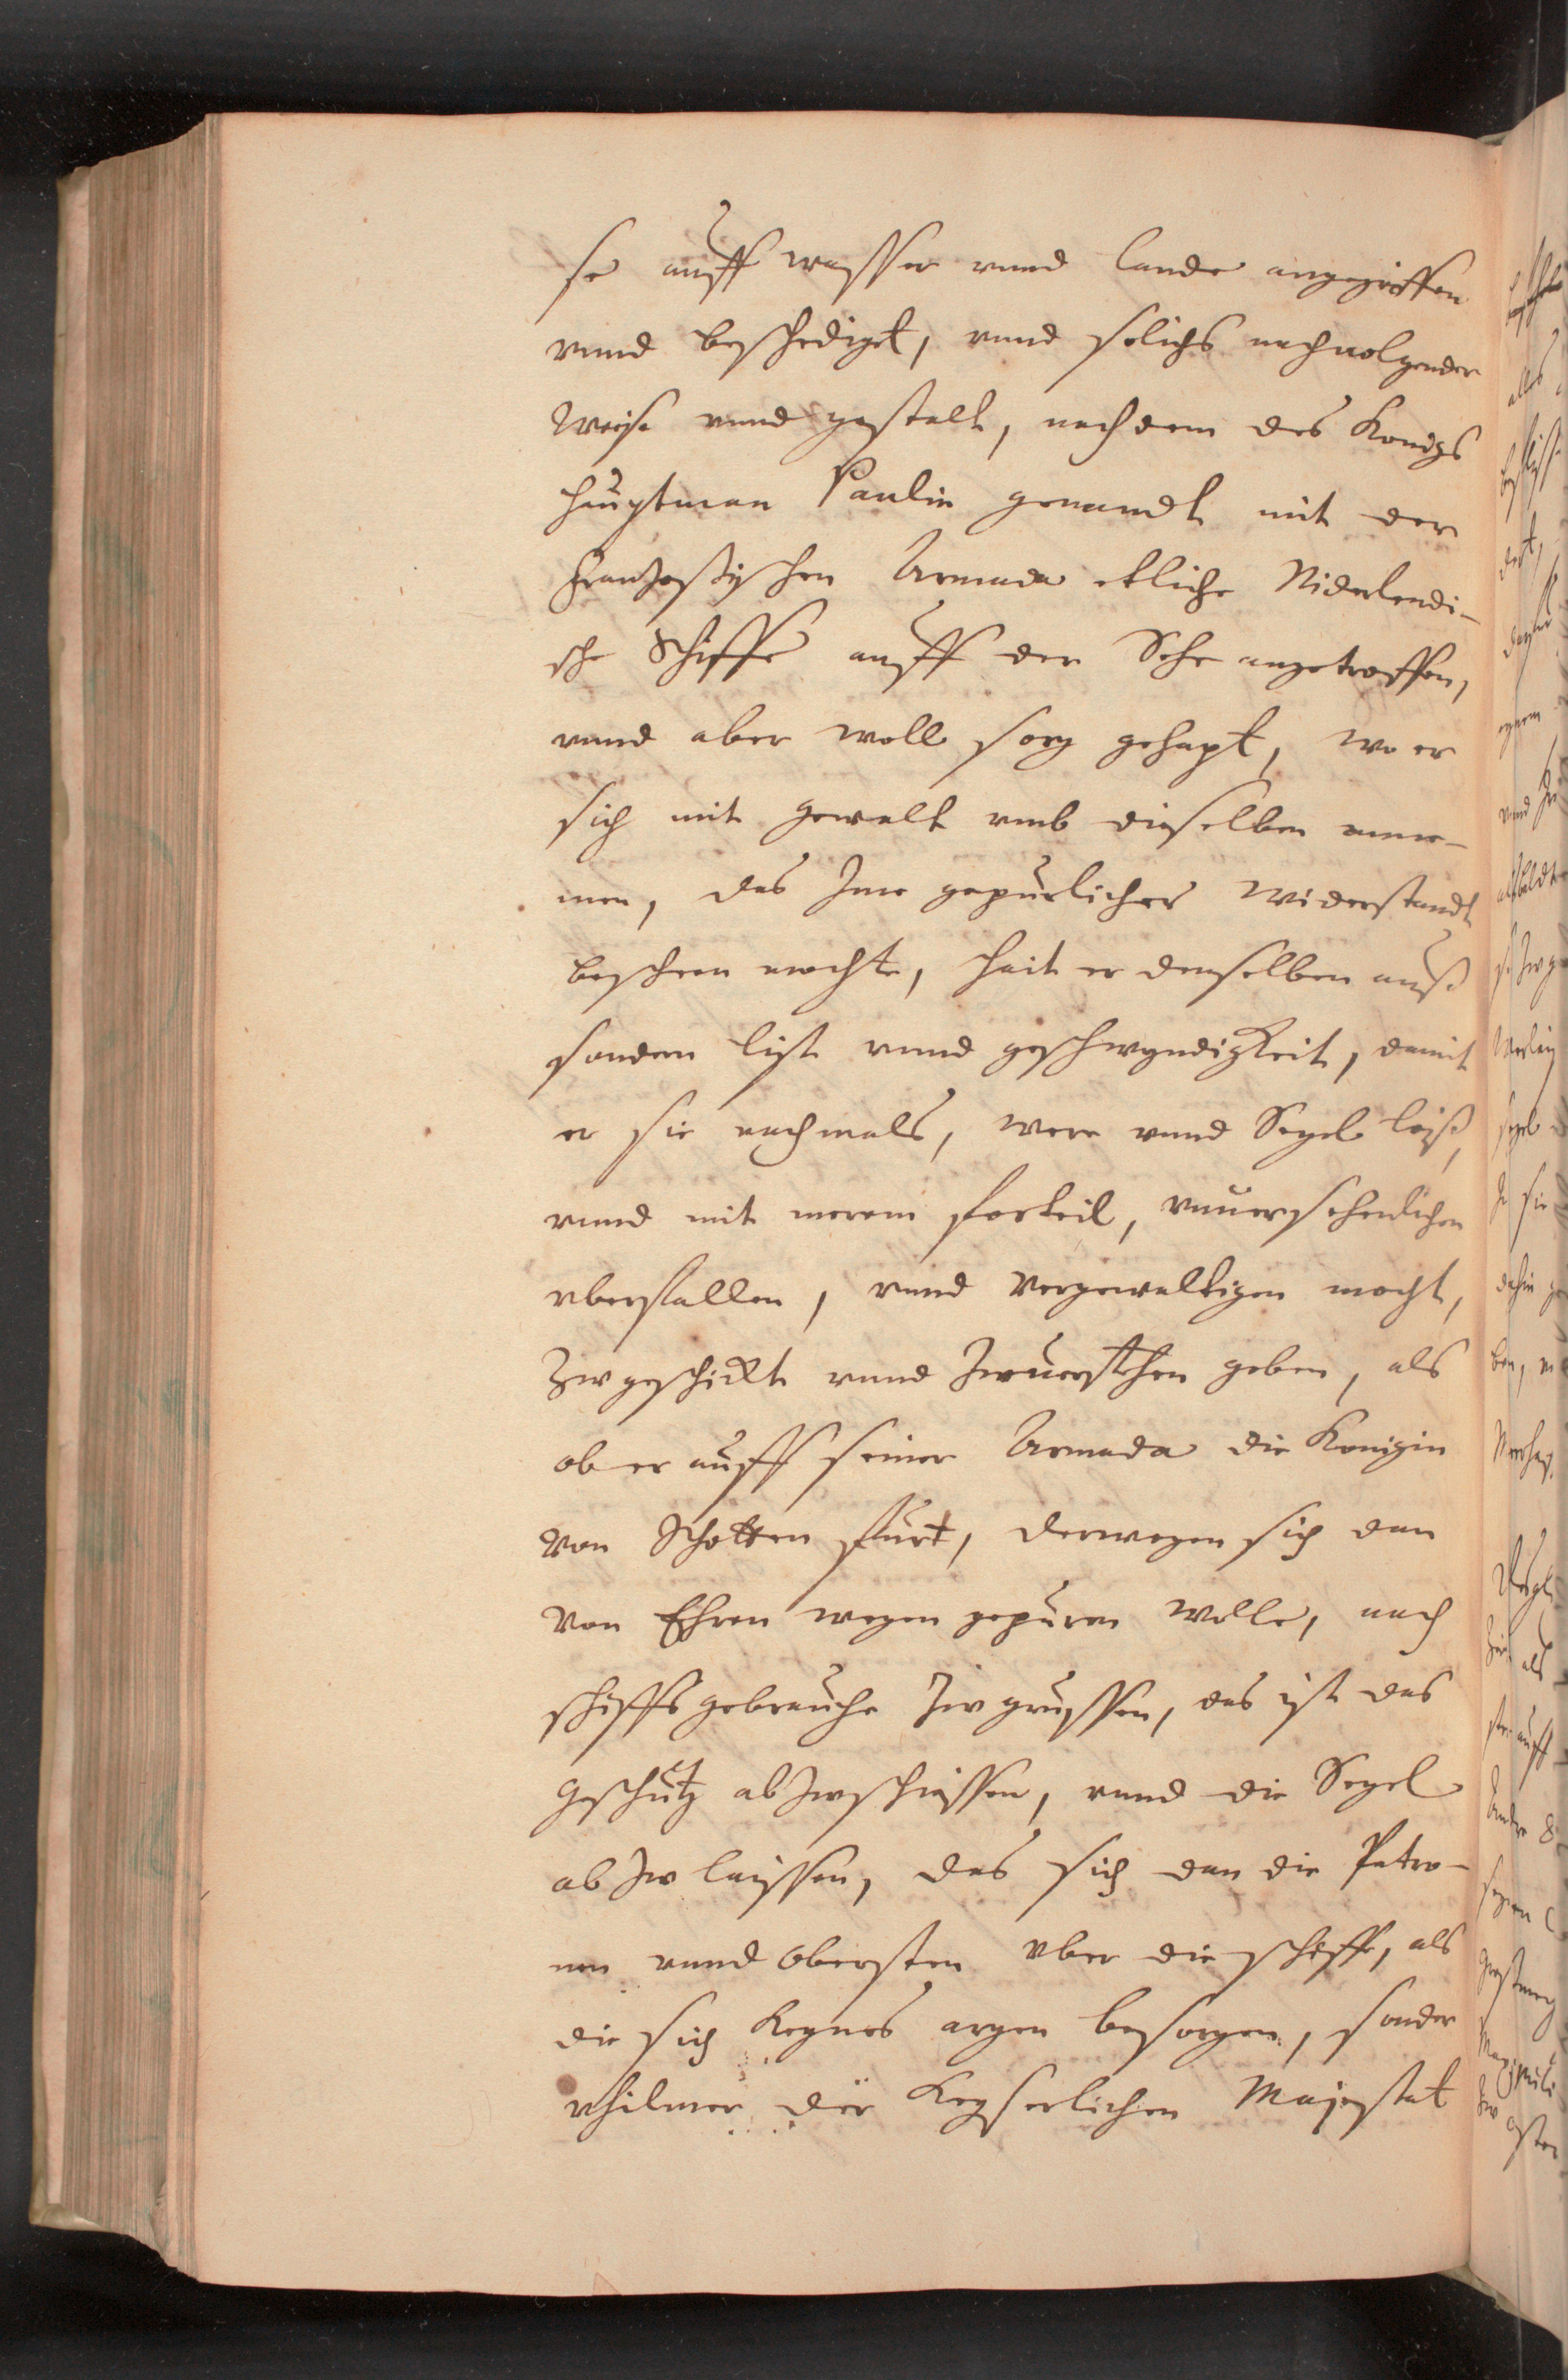 se auff wasser vnnd lande angegriffen
vnnd beschediget, vnnd solichs nachuolgender
Weise vnnd gestalt, nachdem des Konigs
Hauptman Paulin genandt mit der
Franzosischen Armada etliche Niderlendi-
sche Schiffe auff der Sehe angetroffen,
vnnd aber woll sorg gehapt, wo er
sich mit gewalt vmb dieselben anne-
men, das Ime gepurlicher widerstandt
bescheen mochte, hait er denselben auß
sondern list vnnd geschwyndigkeit, damit
er sie nachmals, were vnnd Segel loiß,
vnnd mit merem forteil, vnuersehenlichen
vberfallen, vnnd vergewaltigen mocht,
Zwgeschickt vnnd Zwuerstehen geben, als
ob er auff seiner Armada die Konigin
von Schotten furt, derwegen sich dan
von Ehren wegen gepuren wolle, nach
schiffs gebrauche Zw grussen, das ist das
geschutz abZwschiessen, vnnd die Segel
ab Zw laissen, das sich dan die Patro-
nen vnnd Obersten vber die schiffe, als
die sich keynes argen besorgen, sonder
vhilmer der Keyserlichen Majestat